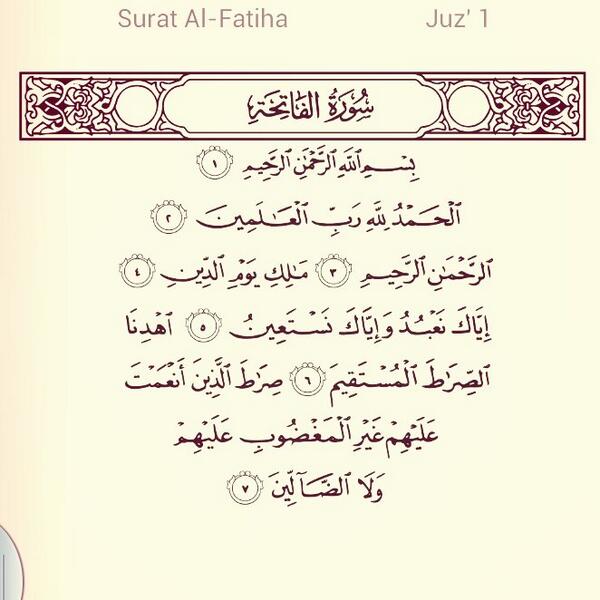 Surat Al-Fatiha Juz' 1
سُورَةُ الفَاتِحَةِ
بِسْمِ ٱللَّهِ ٱلرَّحْمَٰنِ ٱلرَّحِيمِ ١
ٱلْحَمْدُ لِلَّهِ رَبِّ ٱلْعَٰلَمِينَ ٢
ٱلرَّحْمَٰنِ ٱلرَّحِيمِ ٣ مَٰلِكِ يَوْمِ ٱلدِّينِ ٤
إِيَّاكَ نَعْبُدُ وَإِيَّاكَ نَسْتَعِينُ ٥ ٱهْدِنَا
ٱلصِّرَٰطَ ٱلْمُسْتَقِيمَ ٦ صِرَٰطَ ٱلَّذِينَ أَنْعَمْتَ
عَلَيْهِمْ غَيْرِ ٱلْمَغْضُوبِ عَلَيْهِمْ
وَلَا ٱلضَّآلِّينَ ٧